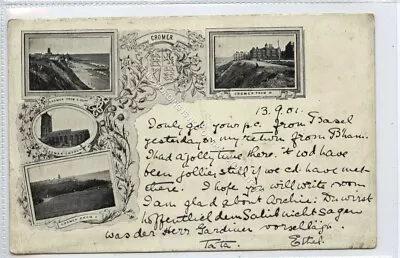 CROMER
CROMER FROM
CROMER FROM W.
13.9.01.
I only got your p.c. from Basel
yesterday on my return from Bham.
I had a jolly time there. it wd have
been jollier still if we cd have met
there. I hope you will write soon
I am glad about Archie: Du wirst
hoffentlich dem Salid nicht sagen
was der Herr Gardiner vorschlägt.
TaTa. Ethel